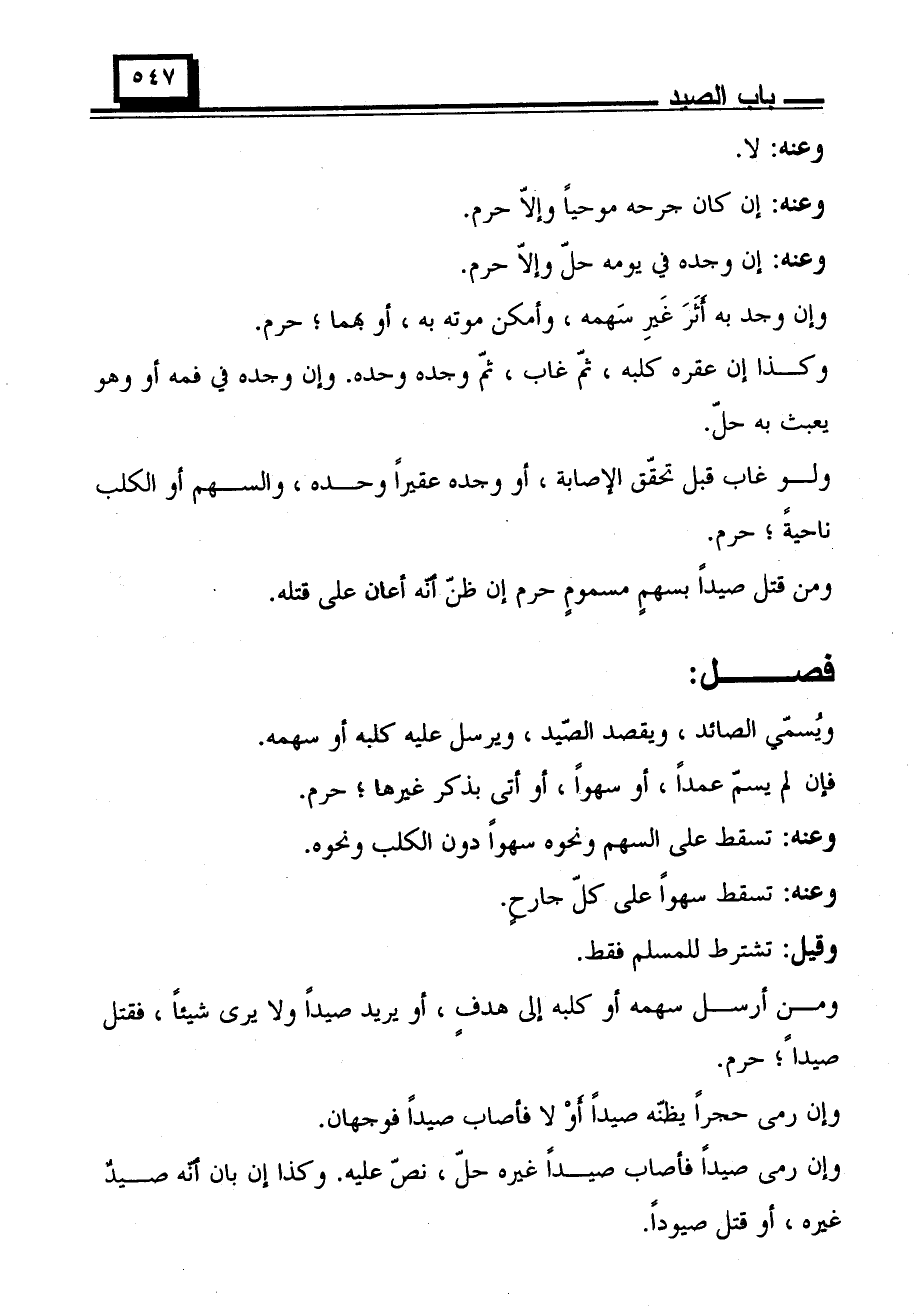 ٥٤٧
باب الصيد
وعنه: لا.
وعنه: إن كان جرحه موحياً وإلاّ حرم.
وعنه: إن وجده في يومه حلّ وإلاّ حرم.
وإن وجد به أَثَرَ غَيرِ سَهمه ، وأمكن موته به ، أو بهما ؛ حرم.
وكـــذا إن عقره كلبه ، ثمّ غاب ، ثمّ وجده وحده. وإن وجده في فمه أو وهو
يعبث به حلّ.
ولـــو غاب قبل تحقّق الإصابة ، أو وجده عقيراً وحـــده ، والســـهم أو الكلب
ناحيةً ؛ حرم.
ومن قتل صيداً بسهمٍ مسمومٍ حرم إن ظنّ أنّه أعان على قتله.
فصـــــل:
ويُسمّي الصائد ، ويقصد الصّيد ، ويرسل عليه كلبه أو سهمه.
فإن لم يسمّ عمداً ، أو سهواً ، أو أتى بذكر غيرها ؛ حرم.
وعنه: تسقط على السهم ونحوه سهواً دون الكلب ونحوه.
وعنه: تسقط سهواً على كلّ جارحٍ.
وقيل: تشترط للمسلم فقط.
ومـــن أرســـل سهمه أو كلبه إلى هدفٍ ، أو يريد صيداً ولا يرى شيئاً ، فقتل
صيداً ؛ حرم.
وإن رمى حجراً يظنّه صيداً أَوْ لا فأصاب صيداً فوجهان.
وإن رمى صيداً فأصاب صيـــداً غيره حلّ ، نصّ عليه. وكذا إن بان أنّه صـــيدٌ
غيره ، أو قتل صيوداً.